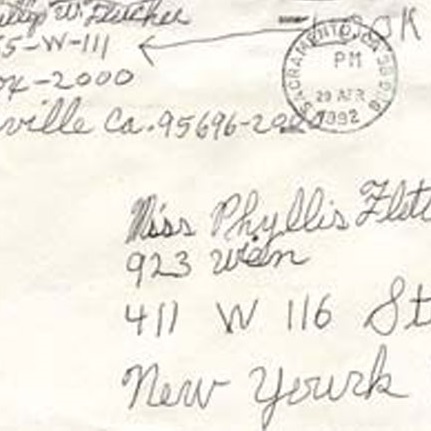 W. Fletcher
5-W-111
OK
-2000
ville Ca. 95696-20
SACRAMENTO, CA
PM
29 APR
1992
Miss Phyllis Flet
923 Wien
411 W 116 St
New Yourk